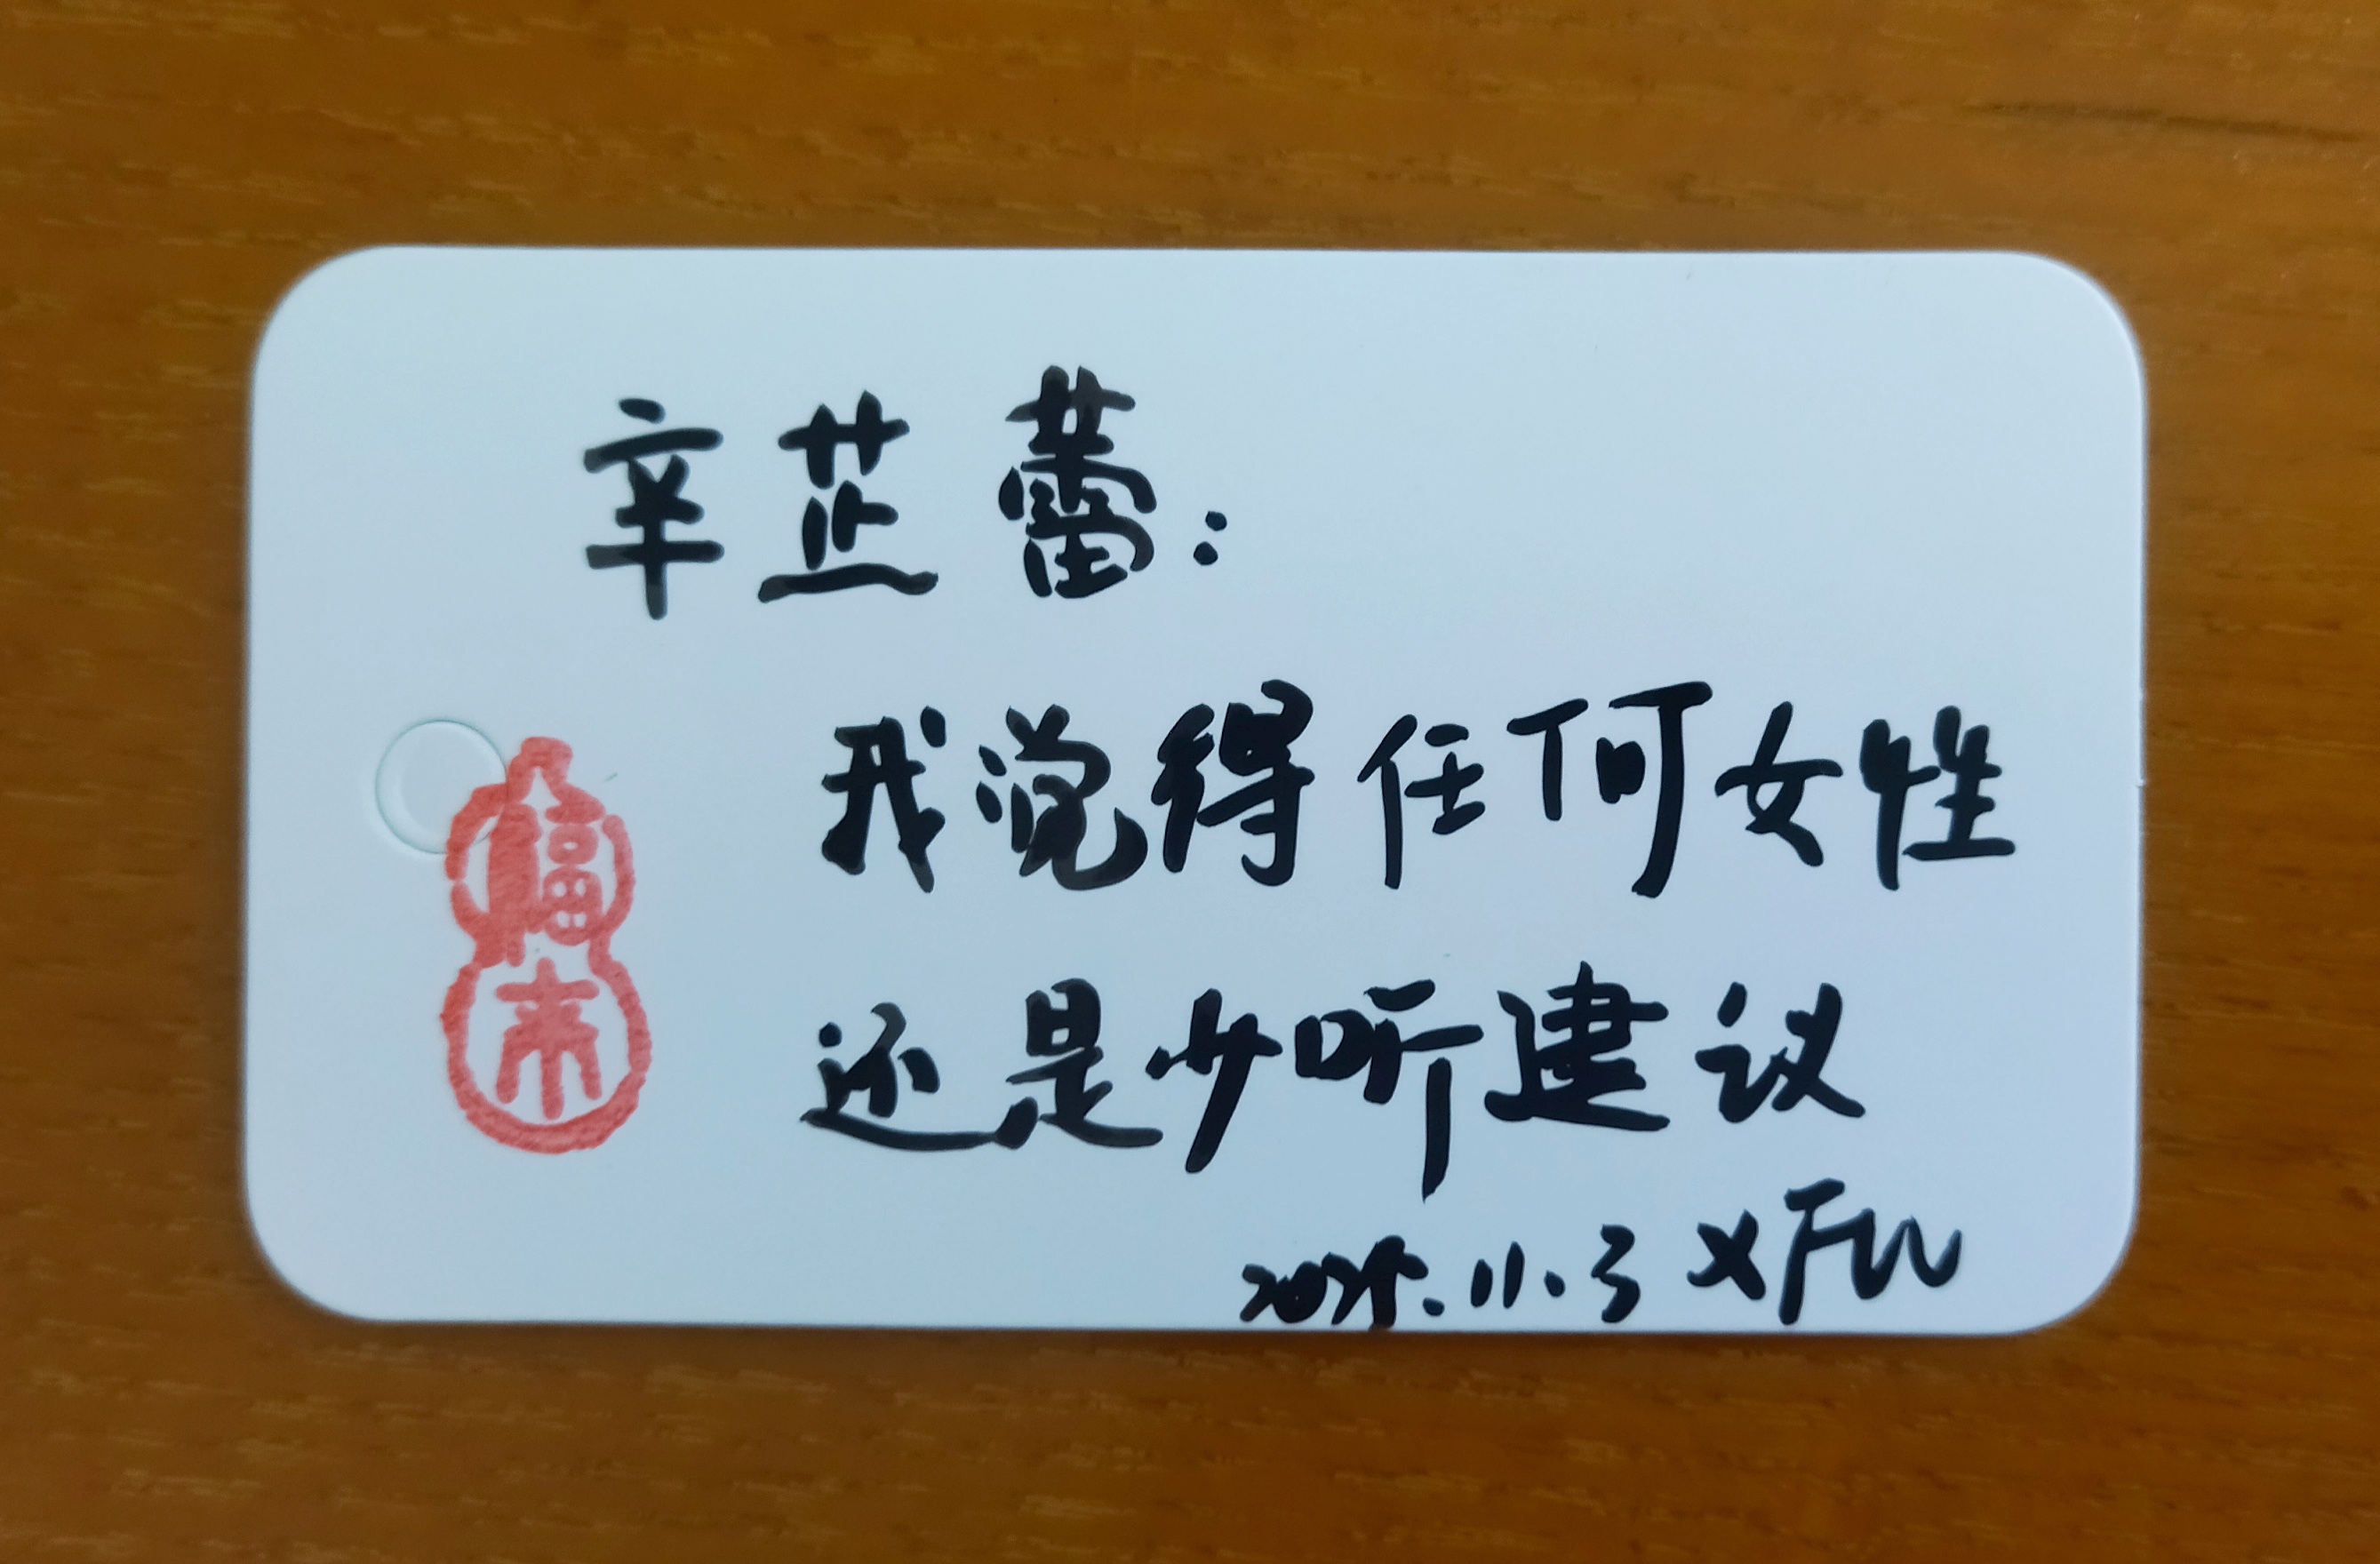 辛芷蕾：
我觉得任何女性
还是少听建议
2025.11.3 XFW
福来